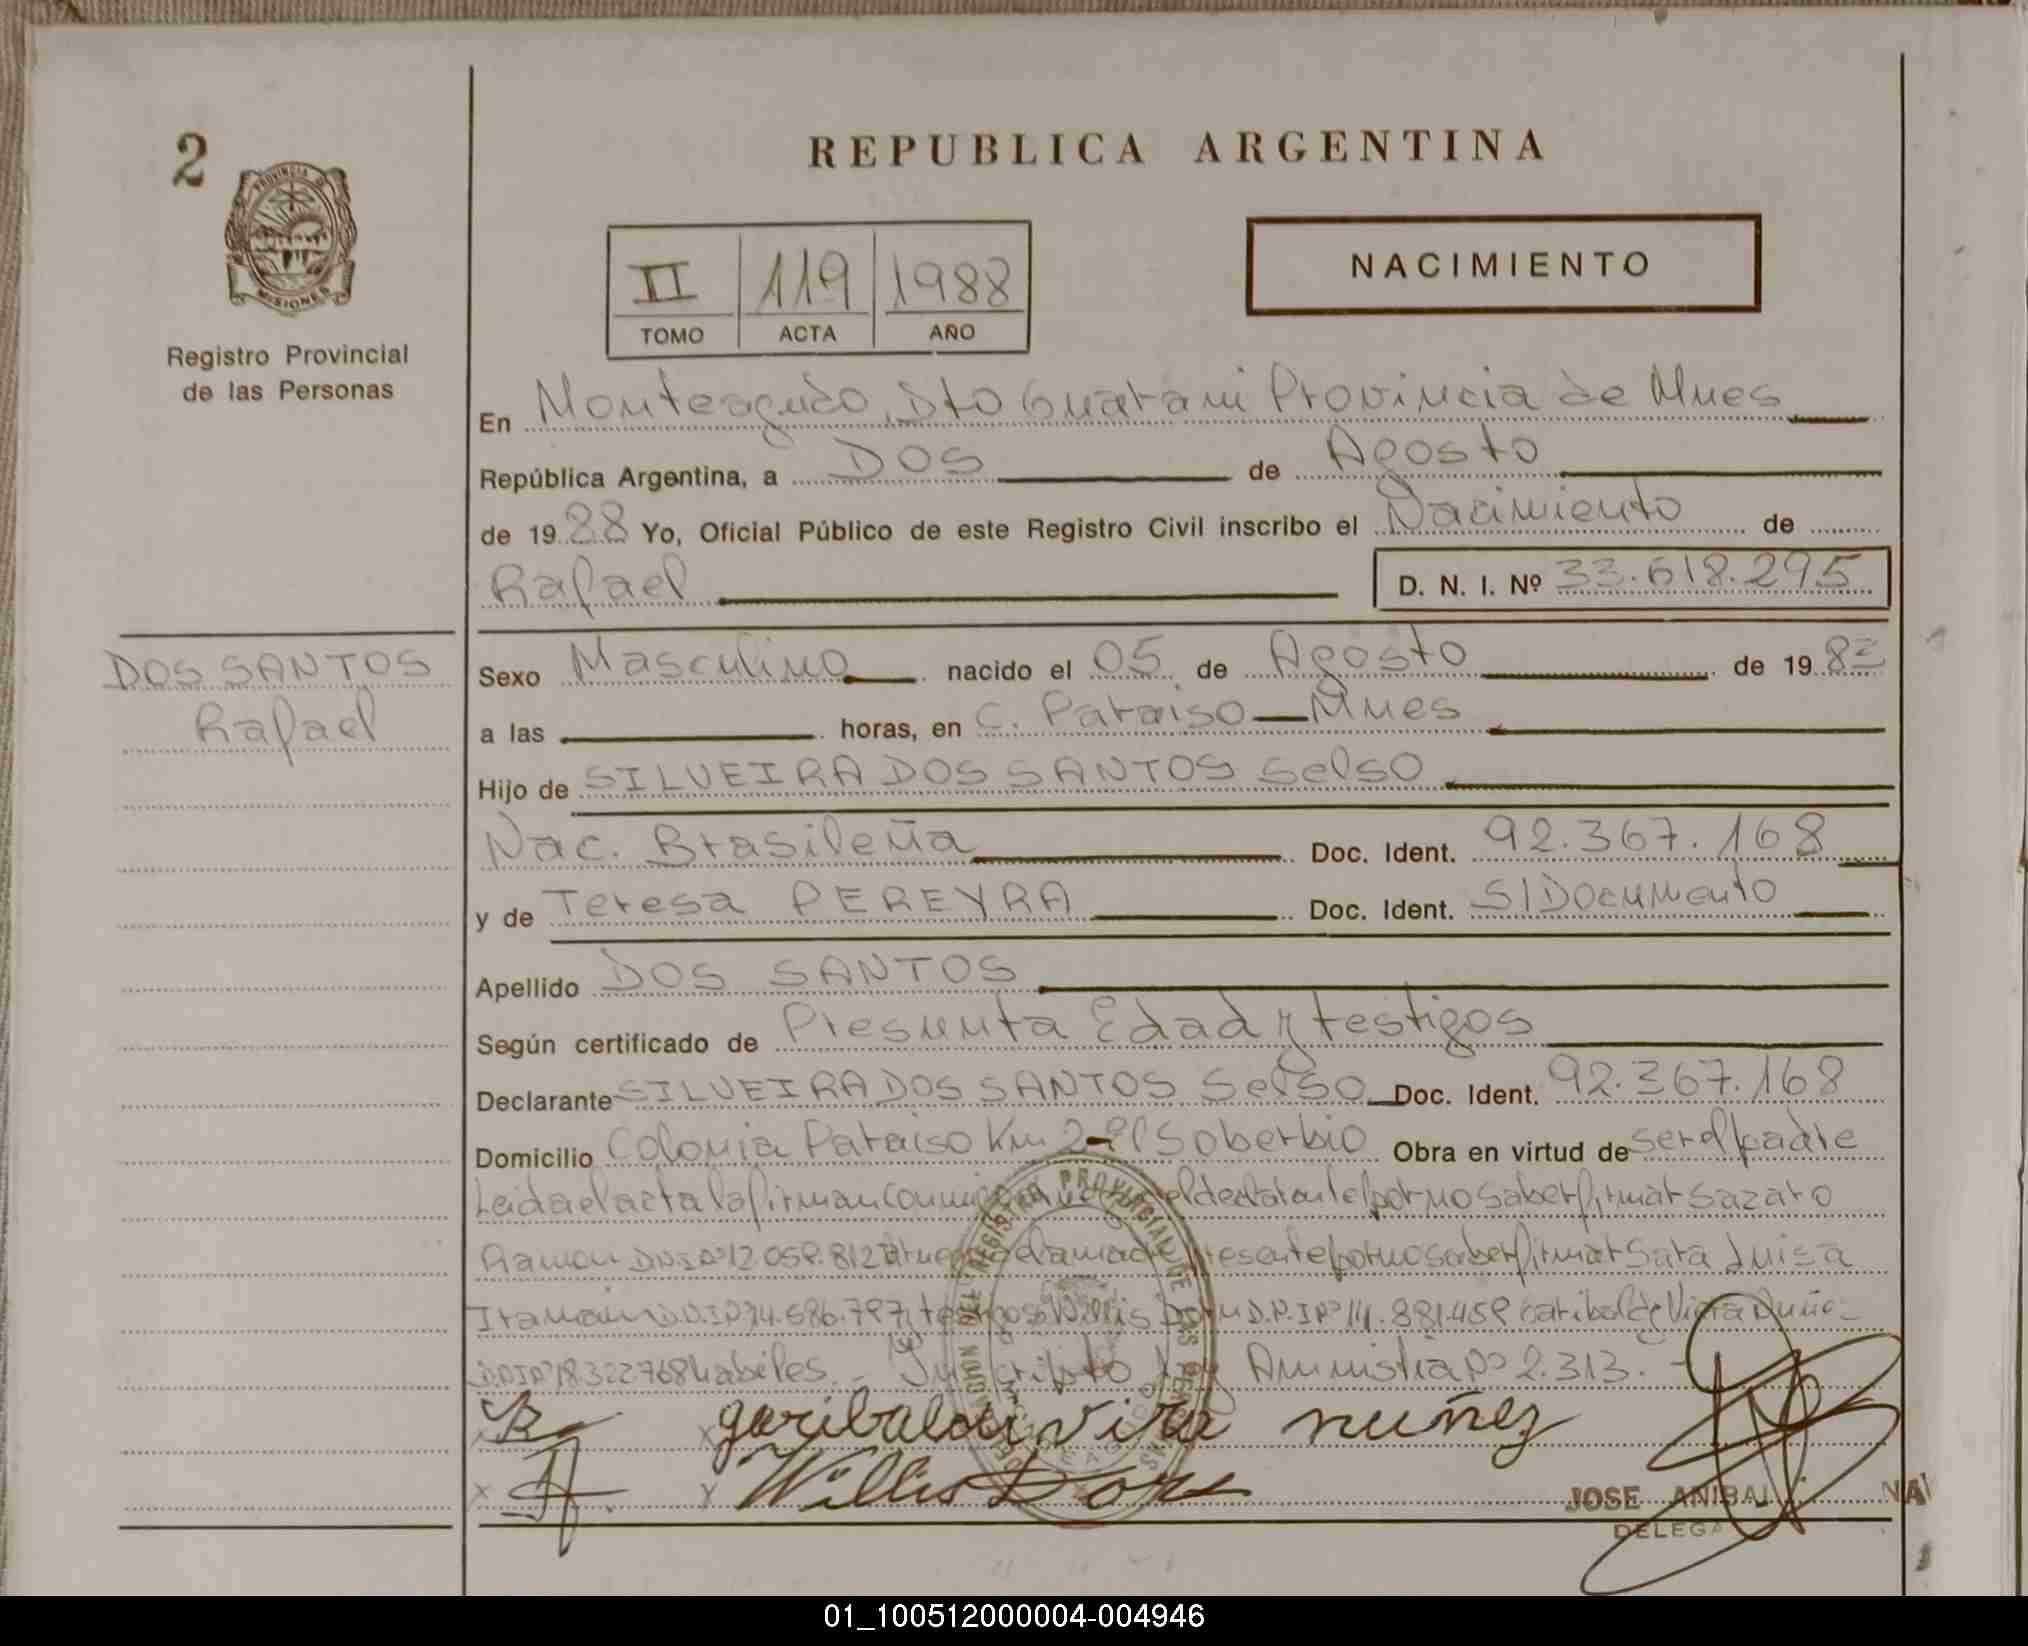 2
REPUBLICA ARGENTINA
PROVINCIA DE
MISIONES
Registro Provincial
de las Personas
II 119 1988
TOMO ACTA AÑO
NACIMIENTO
En Monteagudo, Dto Guarani Provincia de Mnes
República Argentina, a Dos de Agosto
de 1988 Yo, Oficial Público de este Registro Civil inscribo el Nacimiento de
Rafael D. N. I. Nº 33.618.295
DOS SANTOS
Rafael
Sexo Masculino nacido el 05 de Agosto de 198
a las horas, en C. Paraiso - Mnes
Hijo de SILVEIRA DOS SANTOS Selso
Nac. Brasileña Doc. Ident. 92.367.168
y de Teresa PEREYRA Doc. Ident. S/Documento
Apellido DOS SANTOS
Según certificado de Presunta Edad y testigos
Declarante SILVEIRA DOS SANTOS Selso Doc. Ident. 92.367.168
Domicilio Colonia Paraiso Km 2-El Soberbio Obra en virtud de ser el padre
Leida el acta la firman conmigo el declarante por no saber firmar Sazaro
Ramon DNI Nº 12.058.812 de la madre presente por no saber firmar Sara Luisa
D.N.I Nº 14.686.797 testigos Willis D.N.I Nº 14.881.458 Garibaldi Viera Nuñez
DNI Nº 18322768 habiles. - Inscripto Ley Amnistia Nº 2.313. -
garibaldi vira nuñez
Willis
REGISTRO PROVINCIAL DE LAS PERSONAS
JOSE ANIBAL
DELEGA
01_100512000004-004946